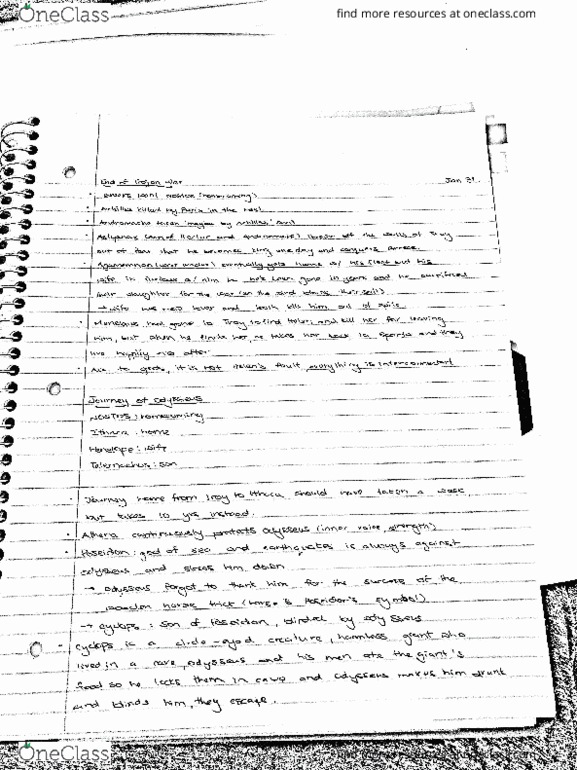 OneClass
find more resources at oneclass.com
End of Trojan War
Jan 31
Achilles killed by Paris in the heel
Andromache taken by Achilles'
Astyanax (son of Hector and Andromache) off the walls of Troy
out of fear that he becomes king one day and conquers
Agamemnon eventually gets home w/ his fleet but his
wife is furious w/ him he been gone 10 years and he sacrificed
their daughter for the war
→ wife and lover kills him, out of spite
Menelaus had gone to Troy to find Helen and kill her for leaving
him, but when he finds her, he takes her back to Sparta and they
live happily after
to gods, it is not Helen's fault everything is interconnected
Journey of Odysseus
NOSTOS : homecoming
Ithaca : home
Penelope : wife
Telemachus : son
Journey home from Troy to Ithaca should have taken a week
but takes 10 yrs instead.
Athena continuously protects Odysseus (inner voice, strength)
Poseidon : god of sea and earthquakes is always against
Odysseus and slows him down
→ Odysseus forgot to thank him for the success of the
wooden horse trick (horse is Poseidon's symbol)
→ cyclops : son of Poseidon, blinded by Odysseus
cyclops is a creature, harmless giant who
lived in a cave, Odysseus and his men ate the giant's
food so he locks them in cave and Odysseus makes him drunk
and blinds him, they escape.
OneClass
OneClass